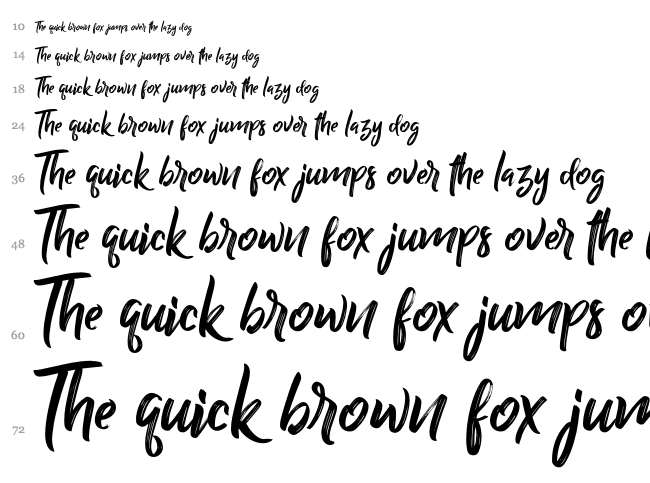 10 The quick brown fox jumps over the lazy dog
14 The quick brown fox jumps over the lazy dog
18 The quick brown fox jumps over the lazy dog
24 The quick brown fox jumps over the lazy dog
36 The quick brown fox jumps over the lazy dog
48 The quick brown fox jumps over the l
60 The quick brown fox jumps o
72 The quick brown fox jum